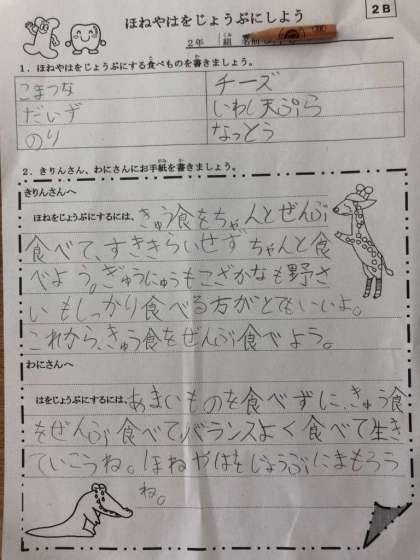 ほねやはをじょうぶにしよう
2B
2年 組 名前
1．ほねやはをじょうぶにする食べものを書きましょう。
こまつな
チーズ
だいず
いわし天ぷら
のり
なっとう
2．きりんさん、わにさんにお手紙を書きましょう。
きりんさんへ
ほねをじょうぶにするには、きゅう食をちゃんとぜんぶ
食べて、すききらいせずちゃんと食
べよう。ぎゅうにゅうもこざかなも野さ
いもしっかり食べる方がとてもいいよ。
これから、きゅう食をぜんぶ食べよう。
わにさんへ
はをじょうぶにするには、あまいものを食べずに、きゅう食
をぜんぶ食べて、バランスよく食べて生き
ていこうね。ほねやはをじょうぶにまもろう
ね。